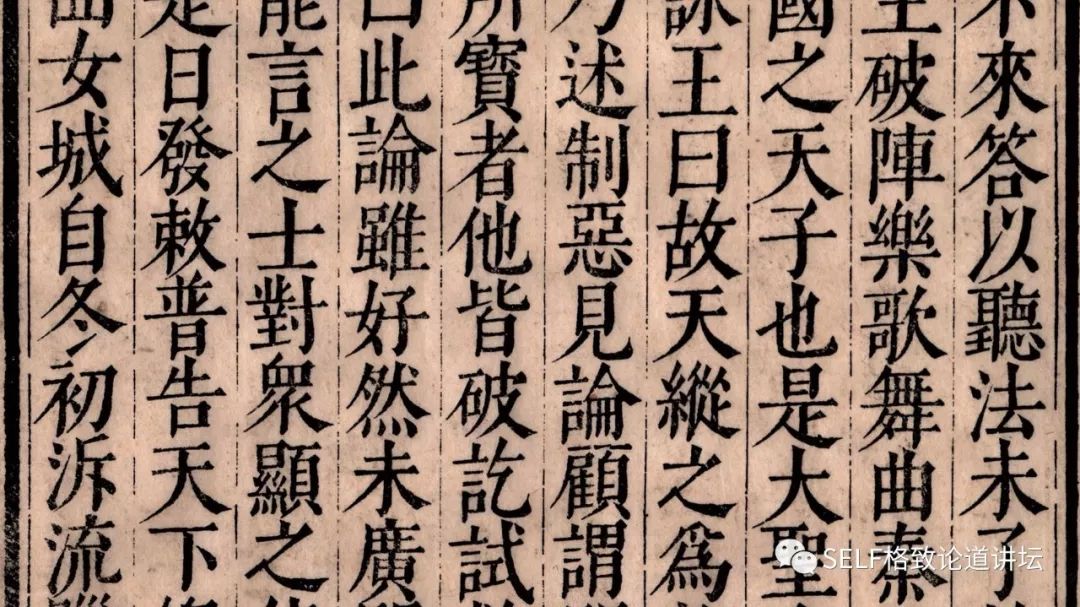 來答以聽法未了
破陣樂歌舞曲秦
國之天子也是大聖
詠王曰故天縱之為
述制惡見論顧謂
所寶者他皆破訖試
曰此論雖好然未廣
能言之士對眾顯之
是日發敕普告天下
女城自冬初泝流
SELF格致论道讲坛